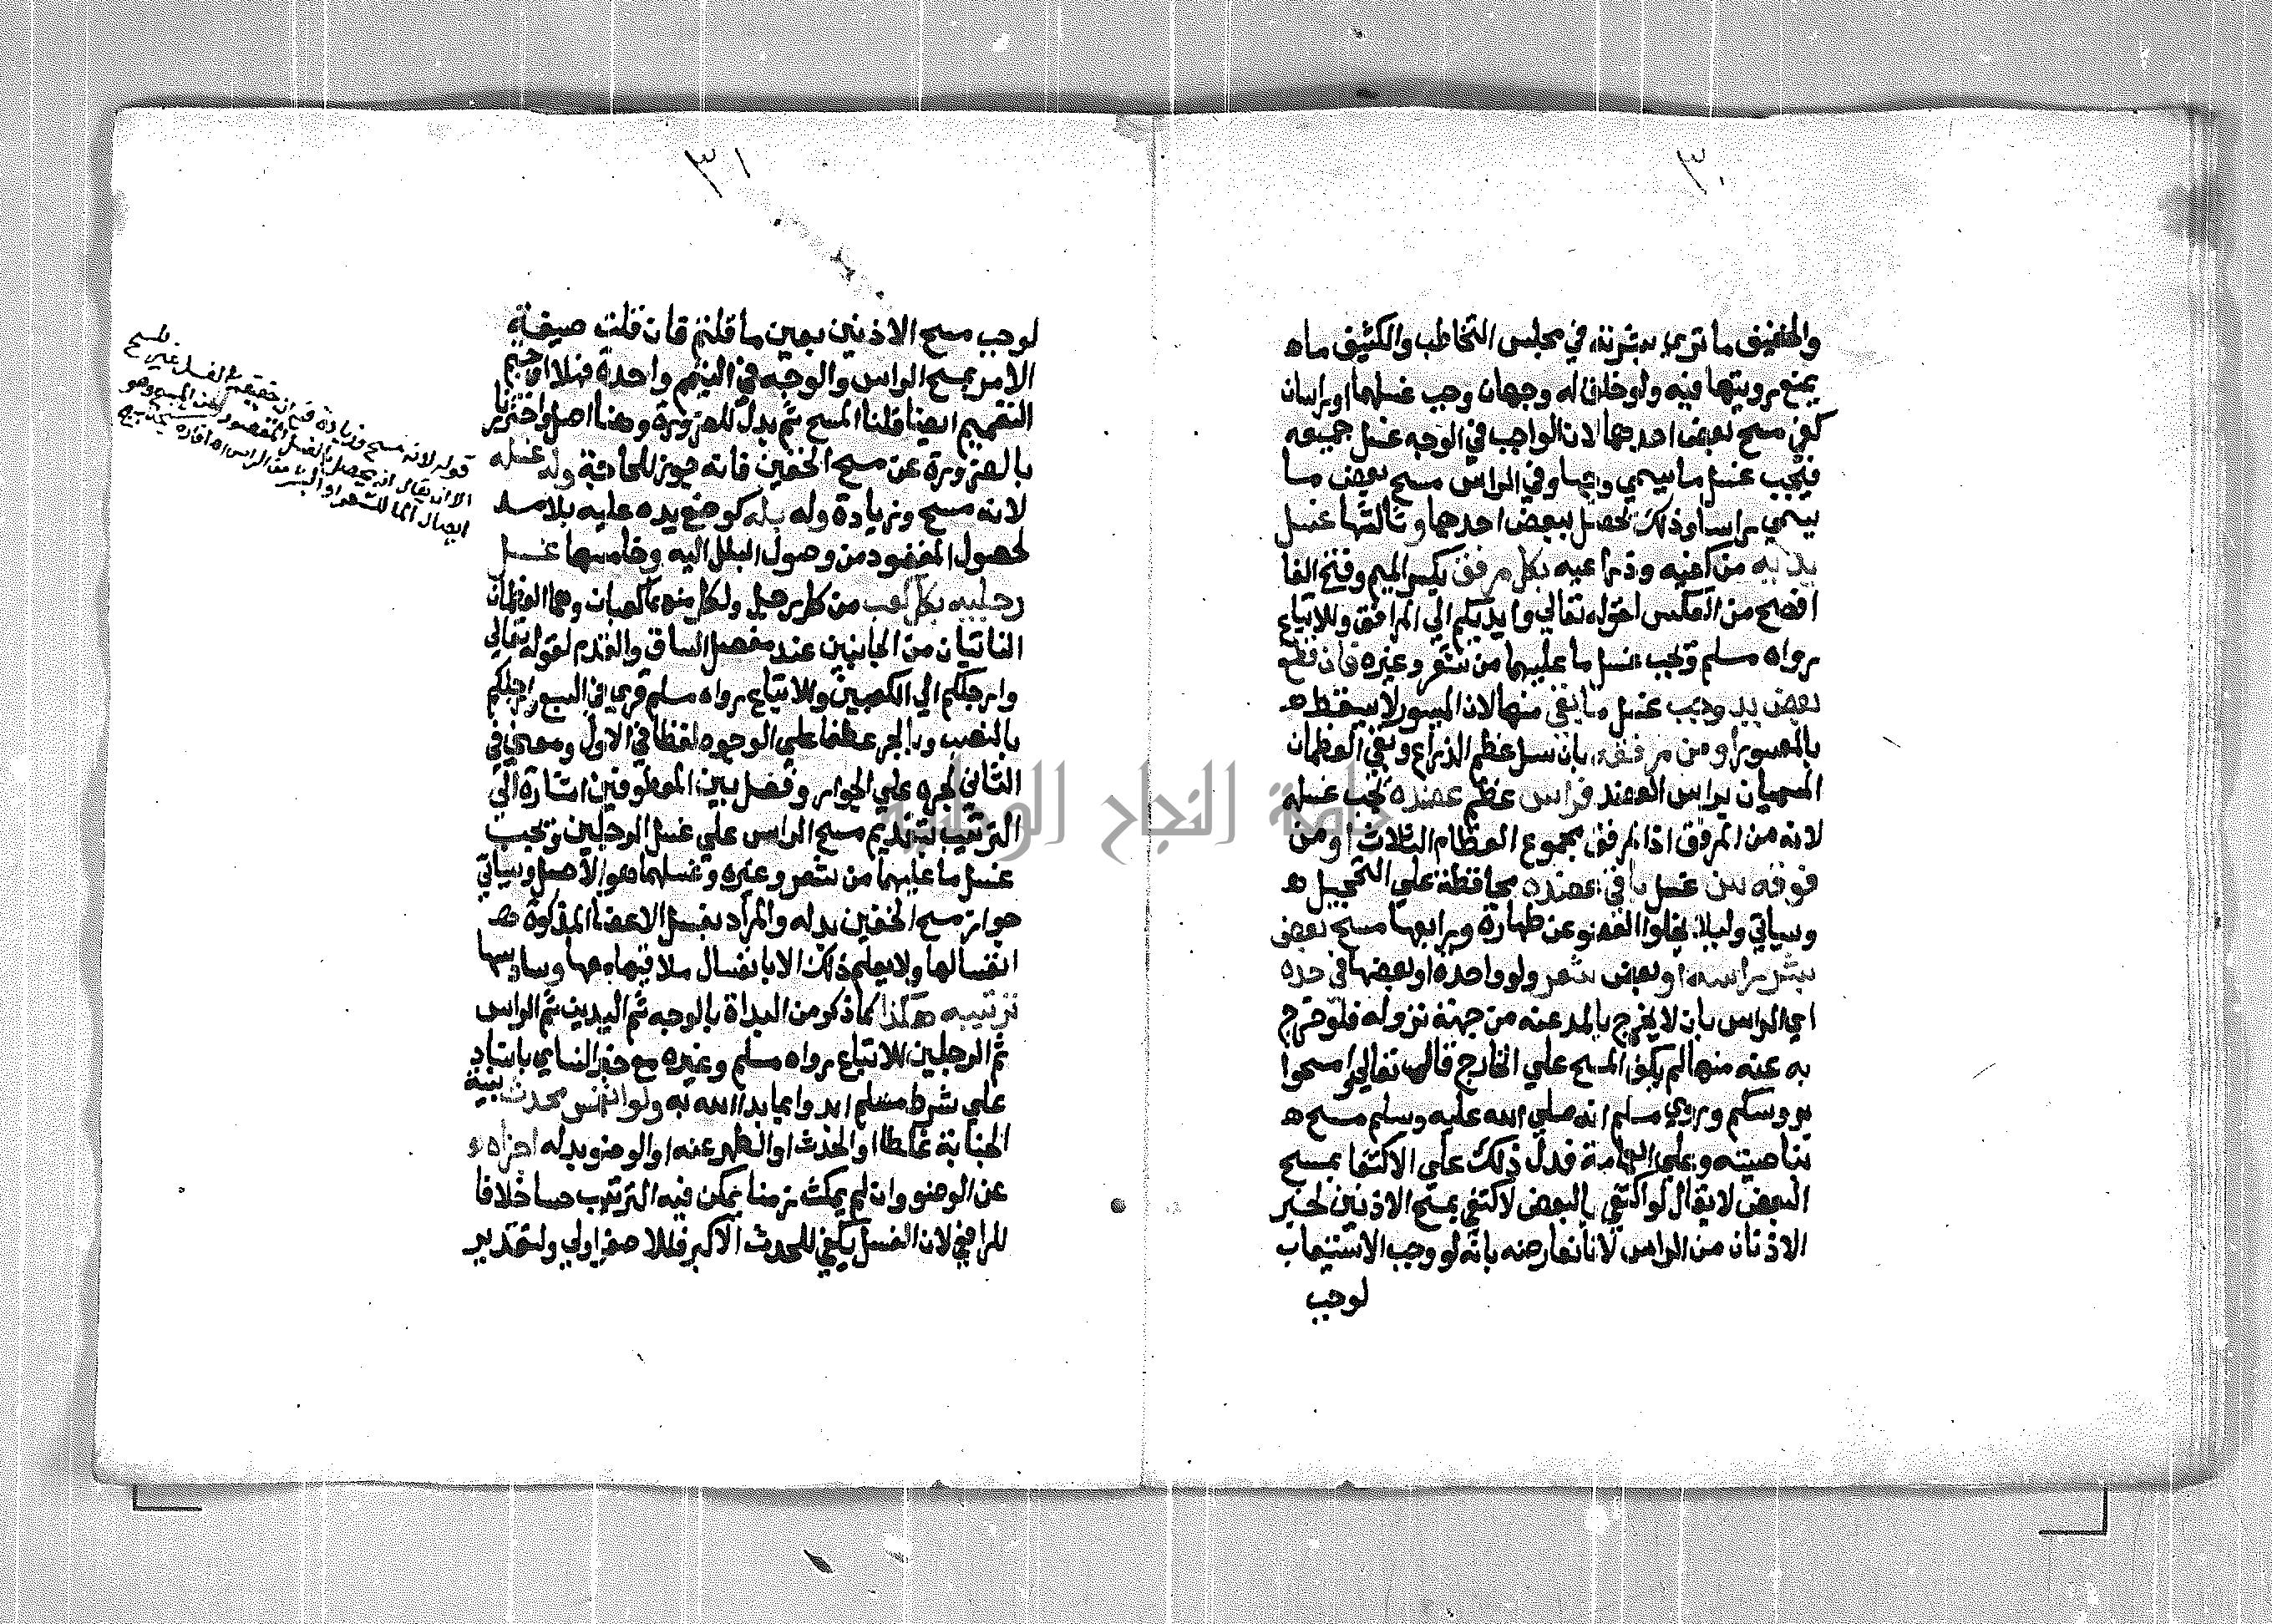 ٣٠
والخفيف ما تري بشرته في مجلس التخاطب والكثيف ما
يمنع رويتها فيه ولو خلق له وجهان وجب غسلهما او راسان
كفي مسح بعض احدهما لان الواجب في الوجه غسل جميعه
فيجب غسل ما يسمي وجها وفي الراس مسح بعض ما
يسمي راسا وذلك يحصل ببعض احدهما وثالثها غسل
يديه من كفيه وذراعيه بكل مرفق بكسر الميم وفتح الفا
افصح من العكس لقوله تعالي وايديكم الي المرافق وللاتباع
رواه مسلم ويجب غسل ما عليهما من شعر وغيره فان قطع
بعض يد وجب غسل ما بقي منها لان الميسور لا يسقط
بالمعسور او من مرفقه بان سل عظم الذراع وبقي العظمان
المسميان براس العضد فراس عظم عضده يجب غسله
لانه من المرفق اذ المرفق مجموع العظام الثلاث او من
فوقه سن غسل باقي عضده محافظة علي التحجيل
وسياتي وليلا يخلوا العضو عن طهارة ورابعها مسح بعض
بشر راسه او بعض شعر ولو واحدة او بعضها في حده
اي الراس بان لا يخرج بالمد عنه من جهة نزوله فلو خرج
به عنه منها لم يكف المسح علي الخارج قال تعالي وامسحوا
بروسكم وروي مسلم انه صلي الله عليه وسلم مسح
بناصيته وعلي العمامة فدل ذلك علي الاكتفا بمسح
البعض لا يقال لو اكتفي بالبعض لاكتفي بمسح الاذنين لخبر
الاذنان من الراس لانا نعارضه بانه لو وجب الاستيعاب
لوجب
٣١
لوجب مسح الاذنين بعين ما قلتم فان قلت صيغة
الامر بمسح الراس والوجه في التيمم واحدة فهلا اوجبتم
التعميم ايضا قلنا المسح ثم بدل للضرورة وهنا اصل واحترزنا
بالضرورة عن مسح الخفين فانه جوز للحاجة وله غسله
لانه مسح وزيادة وله بله كوضع يده عليه بلا مد
لحصول المقصود من وصول البلل اليه وخامسها غسل
رجليه بكل كعب من كل رجل ولكل منهما كعبان وهما العظمان
الناتيان من الجانبين عند مفصل الساق والقدم لقوله تعالي
وارجلكم الي الكعبين وللاتباع رواه مسلم قري في السبع وارجلكم
بالنصب وبالجر عطفا علي الوجوه لفظا في الاول ومعني في
الثاني لجره علي الجوار وفصل بين المعطوفين اشارة الي
الترتيب بتقديم مسح الراس علي غسل الرجلين ويجب
غسل ما عليهما من شعر وغيره وغسلهما هو الاصل وسياتي
جواز مسح الخفين بدله والمراد بغسل الاعضا المذكورة
انغسالها ولا يعلم ذلك الا بانغسال ملاقيها معها وسادسها
ترتيبه هكذا كما ذكر من البداة بالوجه ثم اليدين ثم الراس
ثم الرجلين للاتباع رواه مسلم وغيره مع خبر النساي باسناد
علي شرط مسلم ابدوا بما بدا الله به ولو انغمس محدث بنية
الجنابة غلطا او الحدث او الطهر عنه او الوضو بدله اجزاه
عن الوضو وان لم يمكث زمنا يمكن فيه الترتيب حسا خلافا
للرافعي لان الغسل يكفي للحدث الاكبر فللاصغر اولي ولتقدير
قوله لانه مسح وزيادة فيه ان حقيقة الغسل غير المسح
الا ان يقال انه يحصل بالغسل المقصود من المسح وهو
ايصال الما للشعر او البشر من الراس اه افاده شيخنا
جامعة النجاح الوطنية